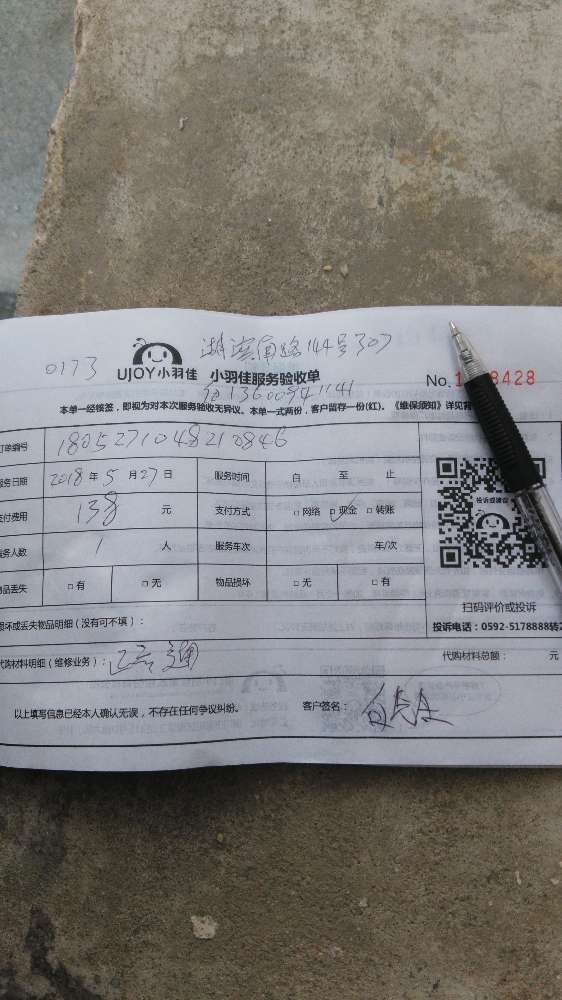 湖滨南路144号307
0173
UJOY小羽佳 小羽佳服务验收单
13600941141
No. 1 8428
本单一经核签,即视为对本次服务验收无异议。本单一式两份,客户留存一份(红)。《维保须知》详见背
订单编号 1805271048210846
服务日期 2018年5月27日 服务时间 自 至 止
支付费用 138 元 支付方式 □网络 □现金 □转账
服务人数 1 人 服务车次 车/次
物品丢失 □有 □无 物品损坏 □无 □有
投诉或建议
扫码评价或投诉
损坏或丢失物品明细(没有可不填):
投诉电话:0592-5178888转2
代购材料明细(维修业务): 已 通 代购材料总额: 元
以上填写信息已经本人确认无误,不存在任何争议纠纷。 客户签名: